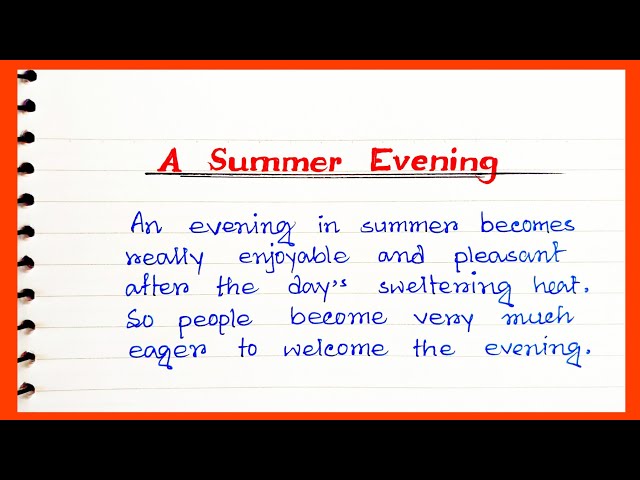 A Summer Evening
An evening in summer becomes
really enjoyable and pleasant
after the day's sweltering heat.
So people become very much
eager to welcome the evening.